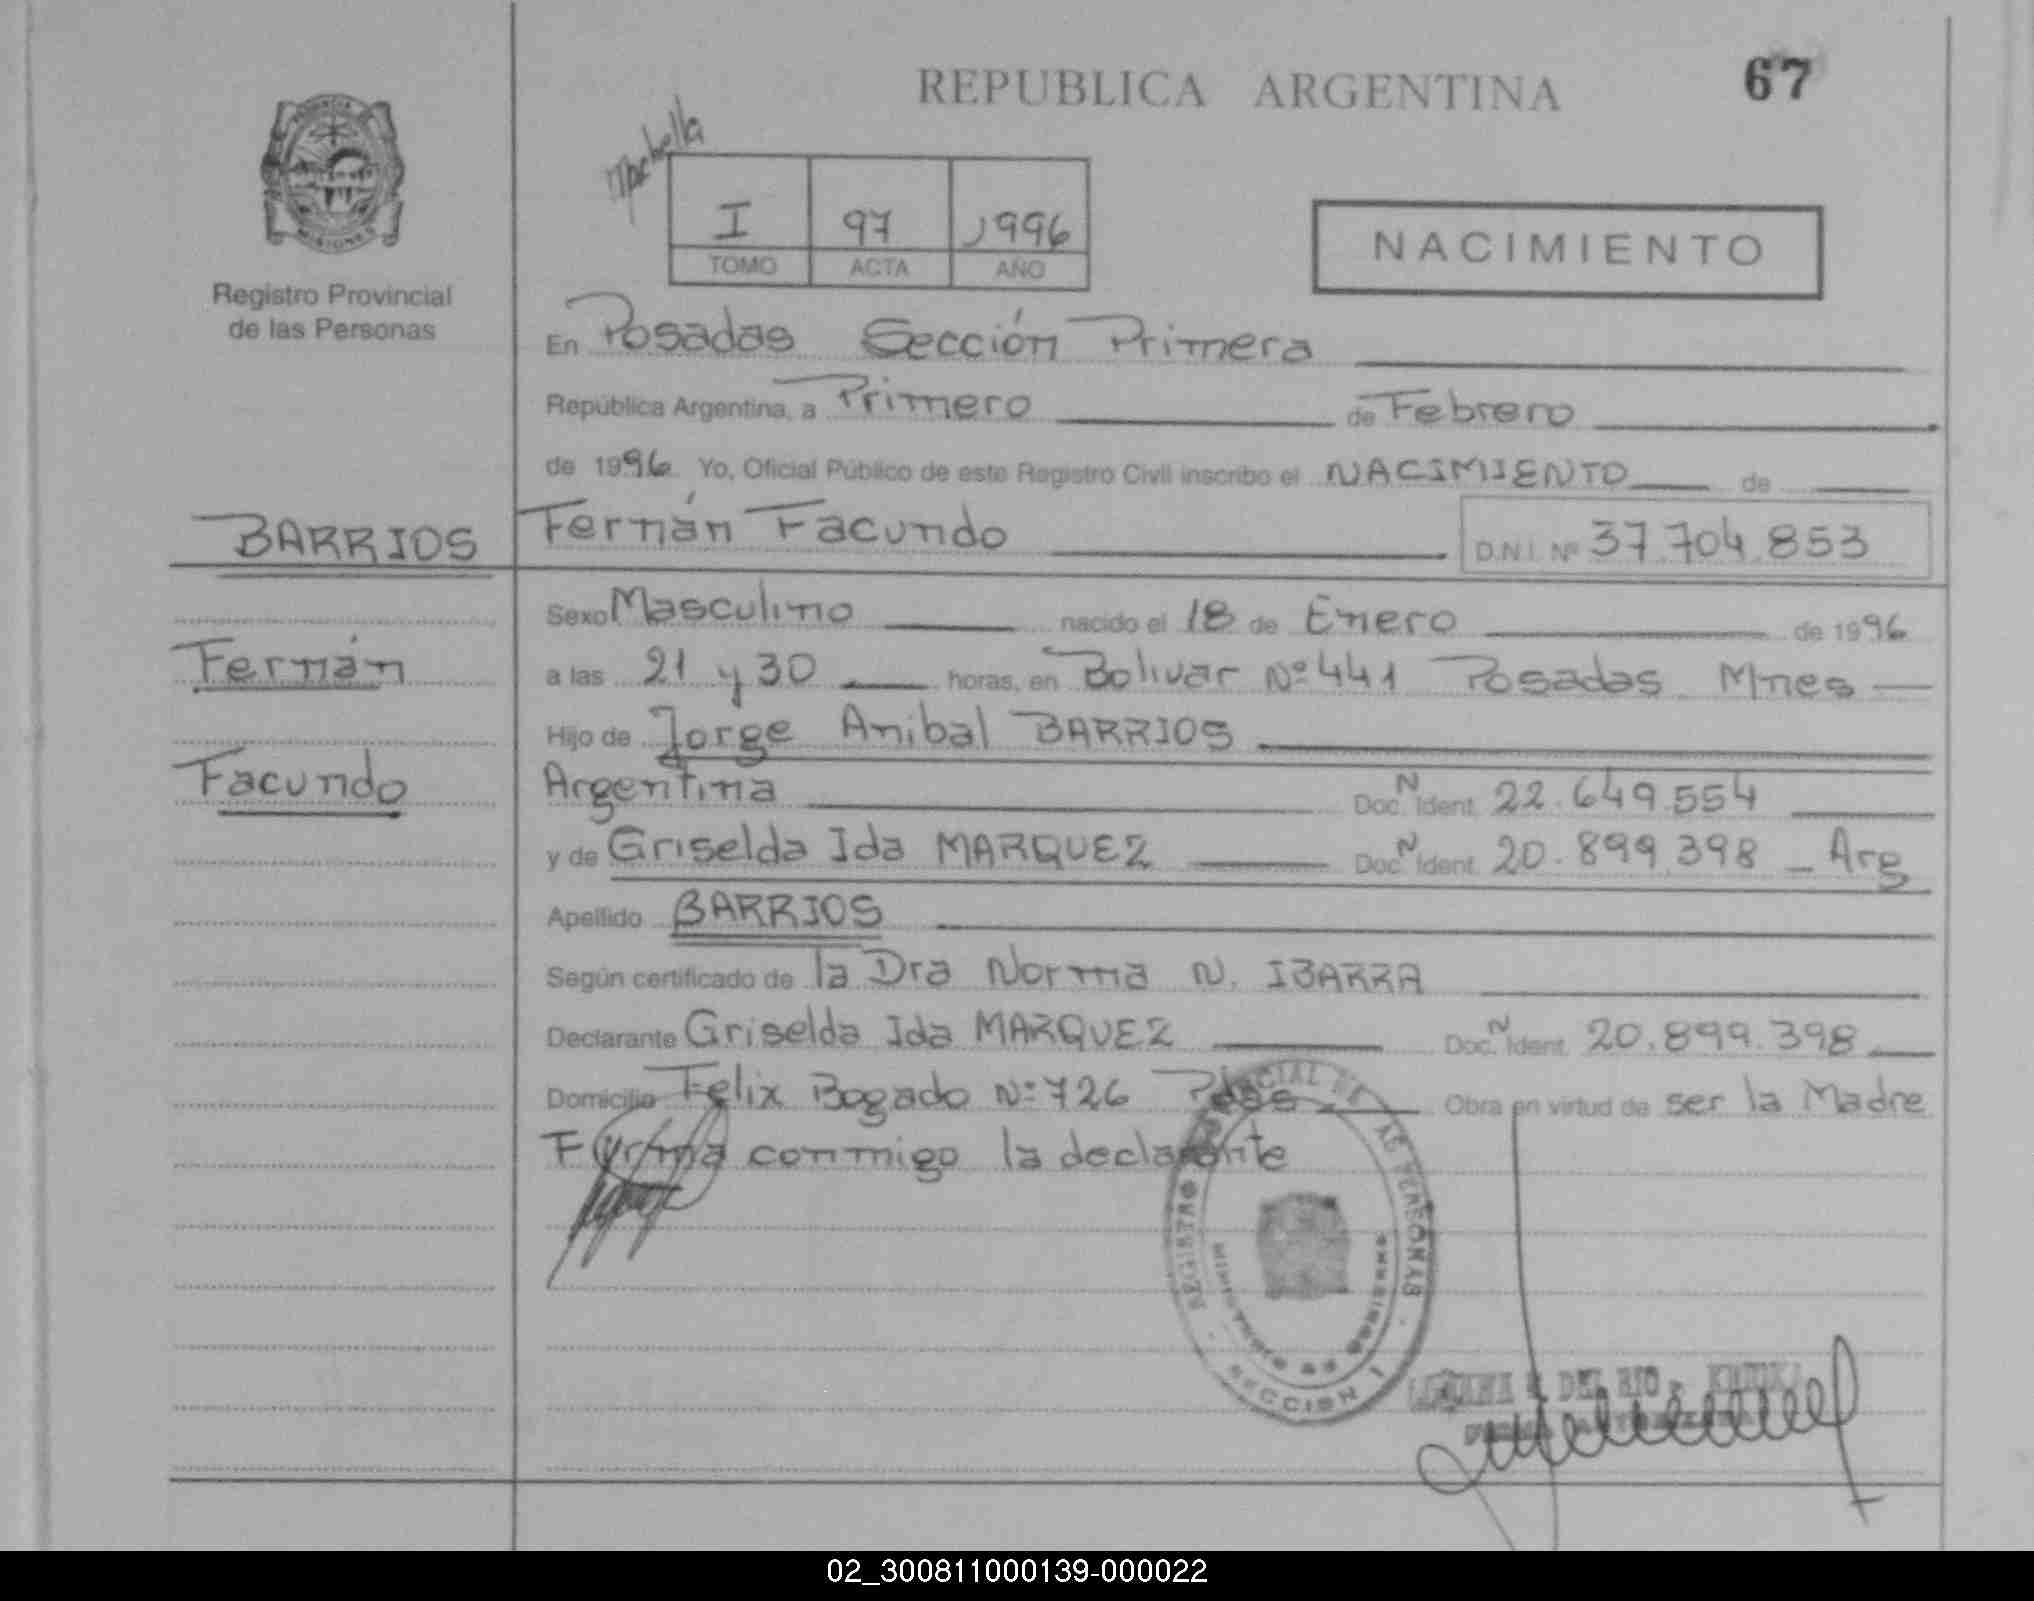 REPUBLICA ARGENTINA
67
PROVINCIA
MISIONES
Registro Provincial
de las Personas
I 97 1996
TOMO ACTA AÑO
NACIMIENTO
En Posadas Sección Primera
República Argentina, a Primero de Febrero
de 1996 Yo, Oficial Público de este Registro Civil inscribo el NACIMIENTO de
BARRIOS
Fernán Facundo D.N.I. Nº 37.704.853
Sexo Masculino nacido el 18 de Enero de 1996
Fernán
a las 21 y 30 horas, en Bolivar Nº 441 Posadas Mnes
Hijo de Jorge Anibal BARRIOS
Facundo
Argentina Doc. N Ident. 22.649.554
y de Griselda Ida MARQUEZ Doc. N Ident. 20.899.398 Arg
Apellido BARRIOS
Según certificado de la Dra Norma N. IBARRA
Declarante Griselda Ida MARQUEZ Doc. N Ident. 20.899.398
Domicilio Felix Bogado Nº 726 Pdas Obra en virtud de ser la Madre
Firma conmigo la declarante
REGISTRO PROVINCIAL DE LAS PERSONAS
MINISTERIO DE GOBIERNO
SECCION 1
DEL RIO
02_300811000139-000022